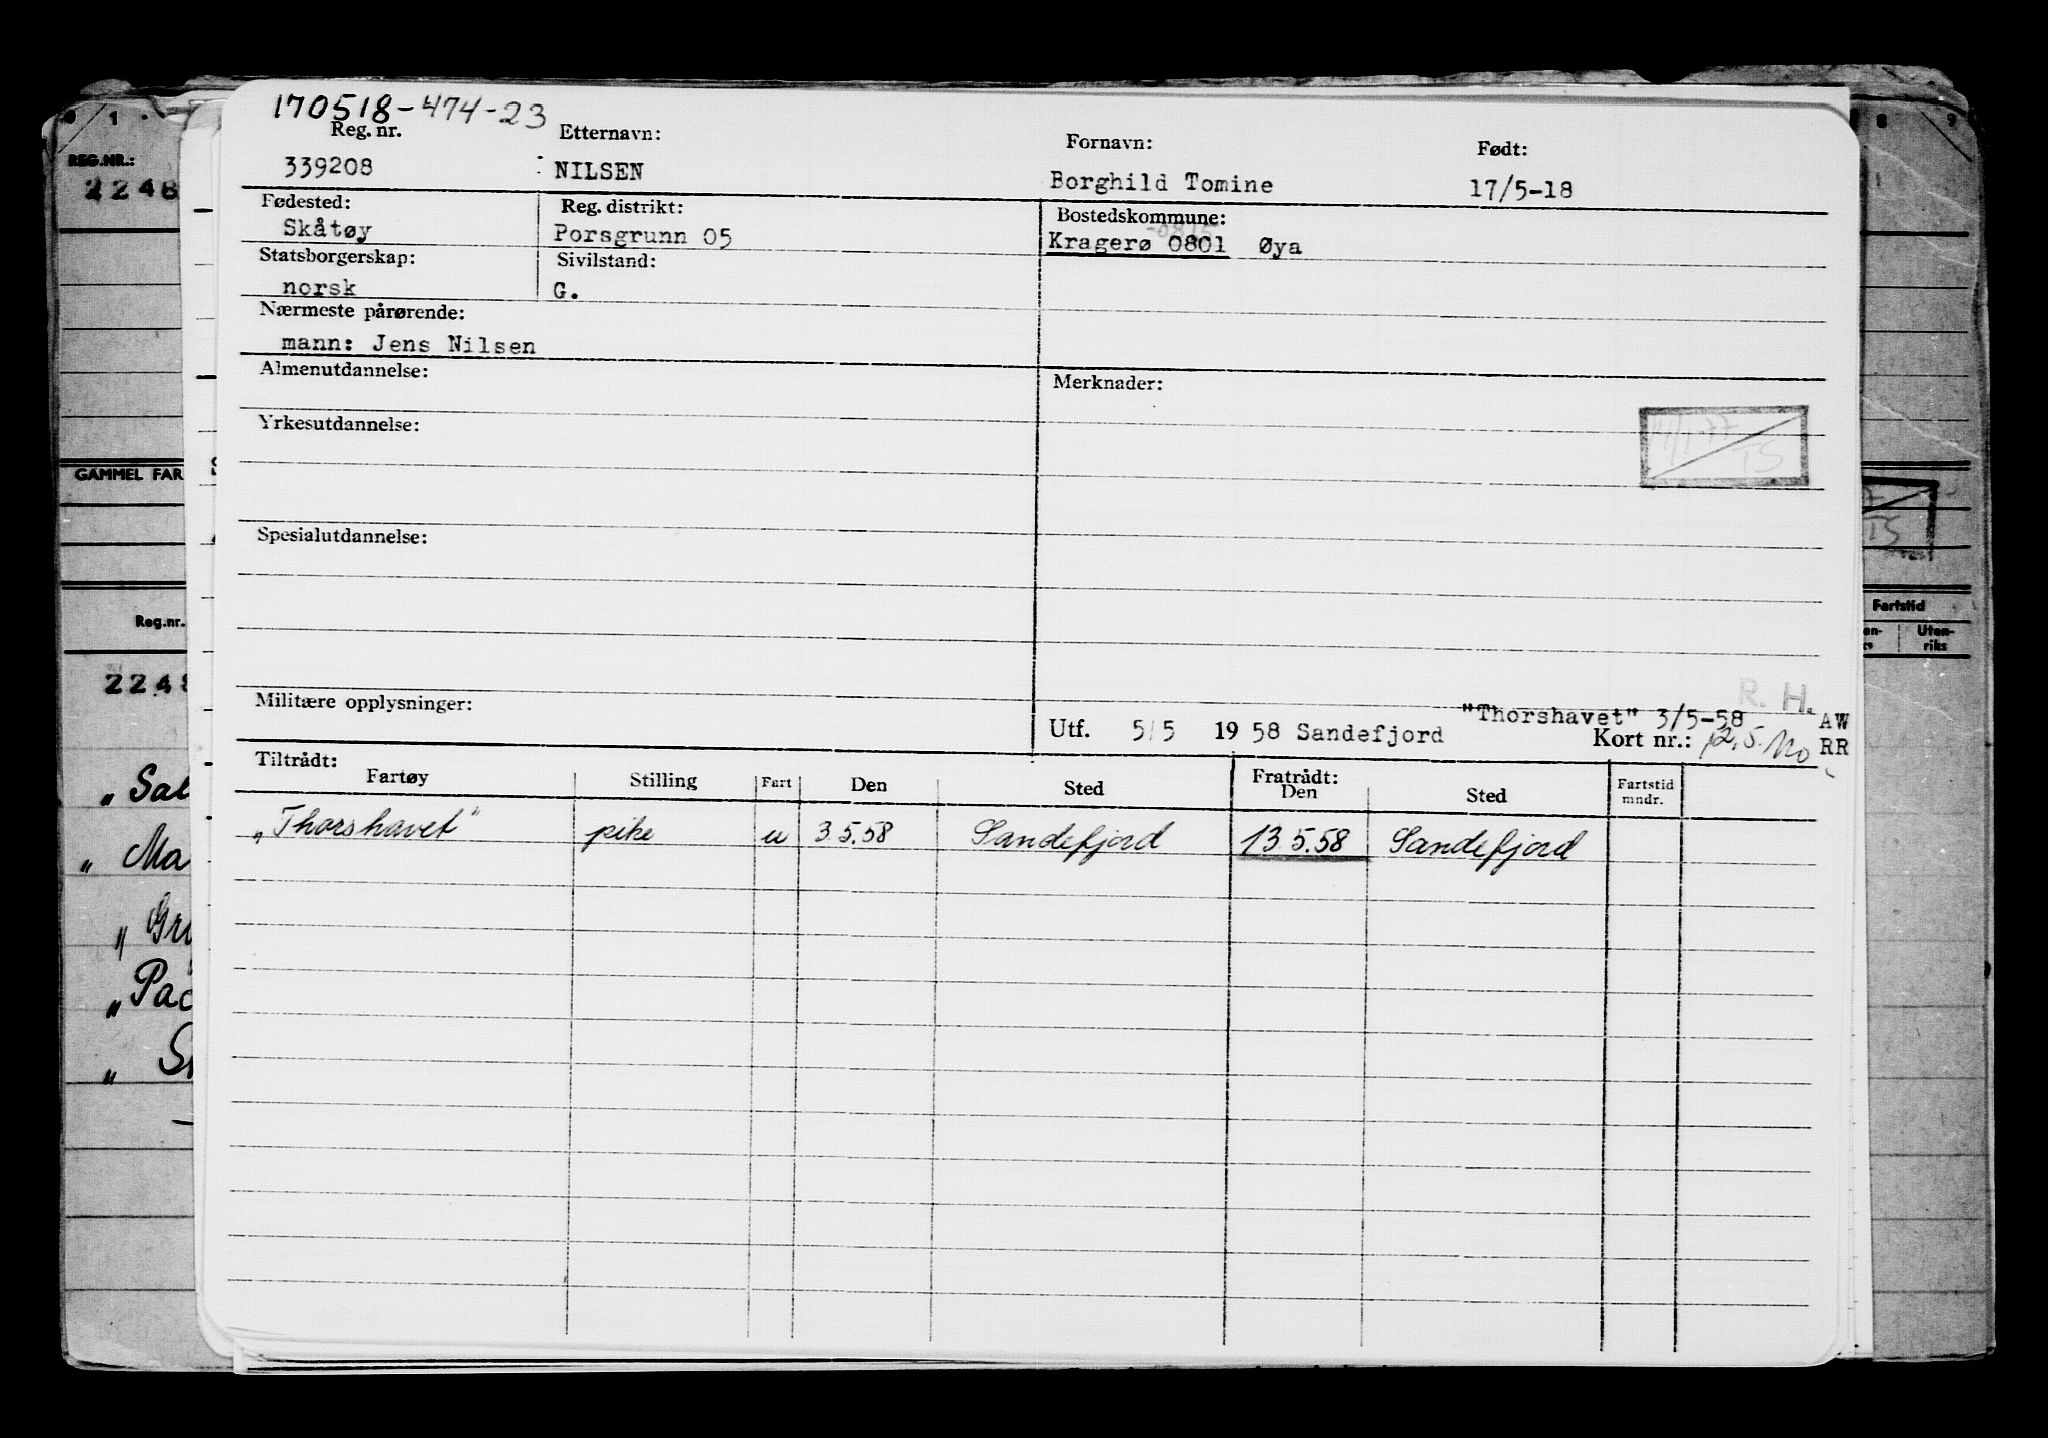 170518-474-23
Reg. nr. Etternavn: Fornavn: Født:
339208 NILSEN Borghild Tomine 17/5-18
Fødested: Reg. distrikt: Bostedskommune:
Skåtøy Porsgrunn 05 Kragerø 0801 Øya
Statsborgerskap: Sivilstand:
norsk G.
Nærmeste pårørende:
mann: Jens Nilsen
Almenutdannelse: Merknader:
Yrkesutdannelse:
TS
Spesialutdannelse:
R. H.
Militære opplysninger: "Thorshavet" 3/5-58 AW
Utf. 5/5 1958 Sandefjord Kort nr.: RR
Tiltrådt: Fratrådt:
Fartøy Stilling Fart Den Sted Den Sted Fartstid mndr.
„Thorshavet" pike u 3.5.58 Sandefjord 13.5.58 Sandefjord
1 8 9
REG.NR.:
2248
GAMMEL FAR
TS
Reg.nr. Fartstid
Uten-
riks
2248
„Sal
„Ma
„Gr
„Pac
„S